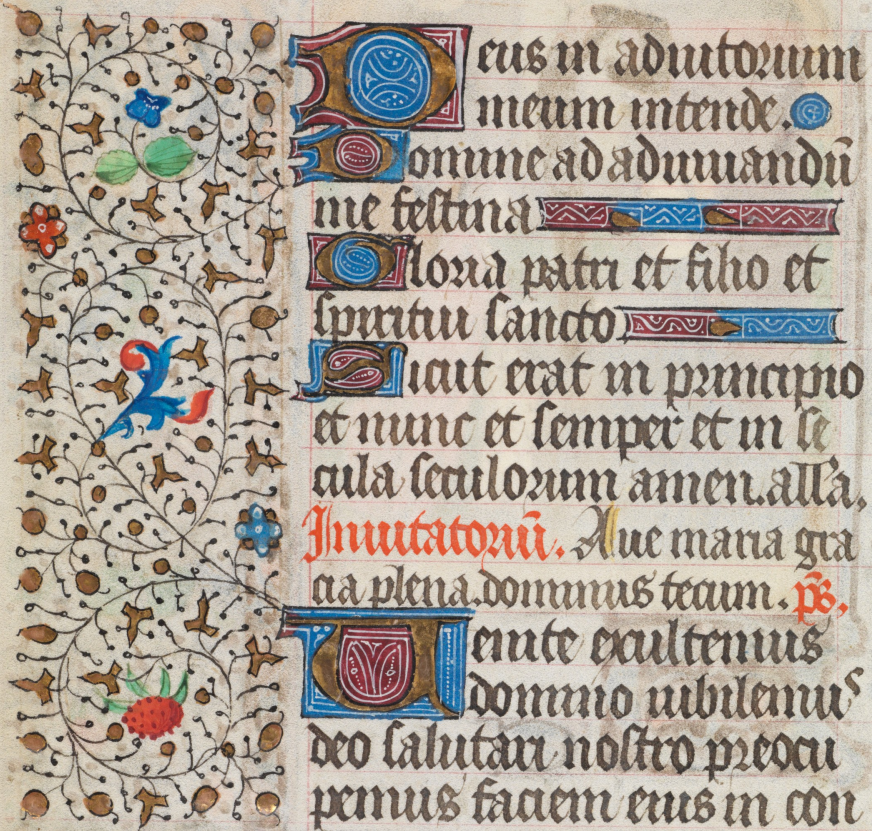 Deus in adiutorium
meum intende.
Domine ad adiuuandū
me festina
Gloria patri et filio et
spiritui sancto
Sicut erat in principio
et nunc et semper et in se
cula seculorum amen. all̄a.
Inuitatoriū. Aue maria gra
cia plena. dominus tecum. p̄s.
Uenite exultemus
domino iubilemus
deo salutari nostro preocu
pemus faciem eius in con